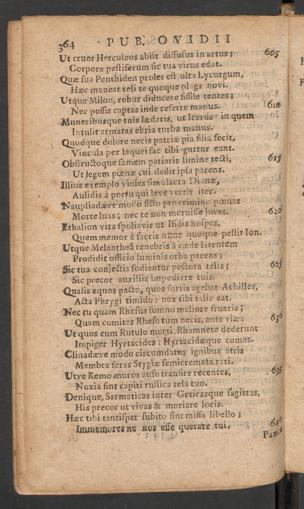 364 PUB. OVIDII
Ut cruor Herculeos abiit diffusus in artus; 605
Corpora pestiferum sic tua virus edat.
Quæ sua Penthiden proles est ulta Lycurgum,
Hæc maneat teli te quoque plaga novi.
Utque Milon, robur diducere fissile tentes;
Nec possis captas inde referre manus. 610
Muneribusque tuis lædaris, ut Icarus: in quem
Intulit armatas ebria turba manus.
Quodque dolore necis patriæ pia filia fecit,
Vincula per laquei fac tibi guttur eant.
Obstructoque famem patiaris limine tecti, 615
Ut legem pœnæ cui dedit ipsa parens.
Illius exemplo violes simulacra Dianæ,
Aulidis à portu qui leve vertit iter.
Naupliadæve modo ficto pro crimine pœnas
Morte luas; nec te non meruisse juvet. 620
Æthalion vita spoliavit ut Isidis hospes,
Quem memor à sacris nunc quoque pellit Ion.
Utque Melantheä tenebris à cæde latentem
Prodidit officio luminis orba parens;
Sic tua conjectis fodiantur pectora telis; 625
Sic precor auxiliis impediare tuis.
Qualis equos pacto, quos fortia agebat Achilles,
Acta Phrygi timido; nox tibi talis eat.
Nec tu quam Rhesus somno meliore fruaris;
Quam comites Rhesi tum necis, ante viæ: 630
Ut quos cum Rutulo morti Rhamnete dederunt
Impiger Hyrtacides: Hyrtacidæque comes.
Cliniadæve modo circumdatus ignibus atris
Membra feras Stygiæ semicremata rati.
Utve Remo muros auso transire recentes, 635
Noxia sint capiti rustica tela tuo.
Denique, Sarmaticas inter Geticasque sagittas,
His precor ut vivas & moriare locis.
Hæc tibi tantisper subito sint missa libello;
Immemores ne nos esse querare tui. 640